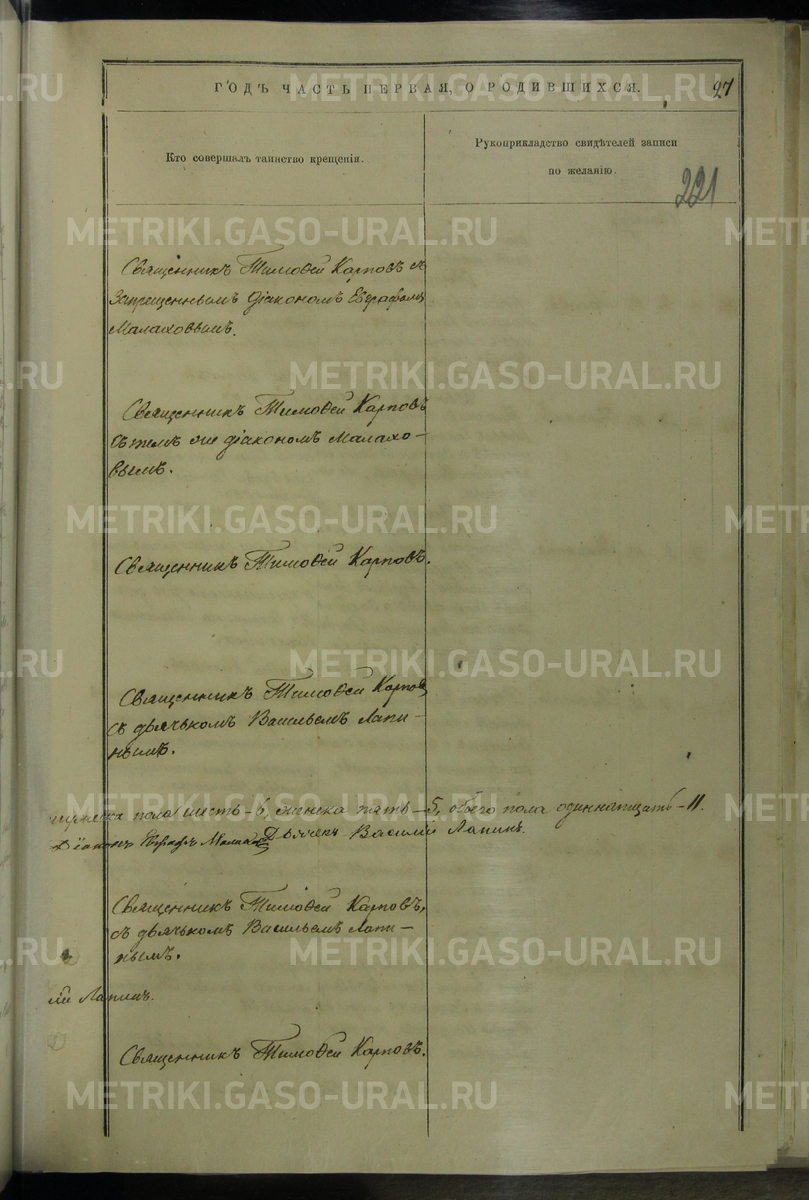 ГОДЪ ЧАСТЬ ПЕРВАЯ, О РОДИВШИХСЯ.
97
Кто совершалъ таинство крещенія.
Рукоприкладство свидѣтелей записи
по желанію.
221
Священникъ Тимоѳей Карповъ съ
запрещеннымъ діакономъ Евграфомъ
Малаховымъ.
Священникъ Тимоѳей Карповъ
съ тѣмъ же діакономъ Малахо-
вымъ.
Священникъ Тимоѳей Карповъ.
Священникъ Тимоѳей Карповъ
съ дьячькомъ Васильемъ Лапи-
нымъ.
мужеска пола шесть-6, женска пять-5, обоего пола одиннатцать-11.
Діаконъ Евграфъ Малаховъ Дьячекъ Василій Лапинъ.
Священникъ Тимоѳей Карповъ,
съ дьячькомъ Васильемъ Лапи-
нымъ.
лій Лапинъ.
Священникъ Тимоѳей Карповъ.
METRIKI.GASO-URAL.RU